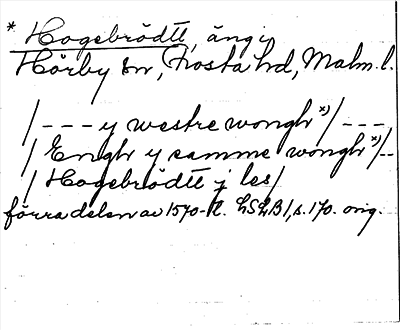 * Hogebrödtt, äng i
Hörby sn, Frosta hd, Malm. l.
/--- y westre wongh x)/ ---
/ Engh y samme wongh x)/--
/ Hogebrödtt j les/
förra delen av 1570-t. LSLB 1, s. 170. orig.